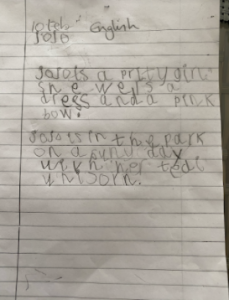 English
JoJo
JoJo is a pritty girl
She wers a
dress and a pink
bow.
JoJo is in the park
on a sunu day
with her tedi
unicorn.